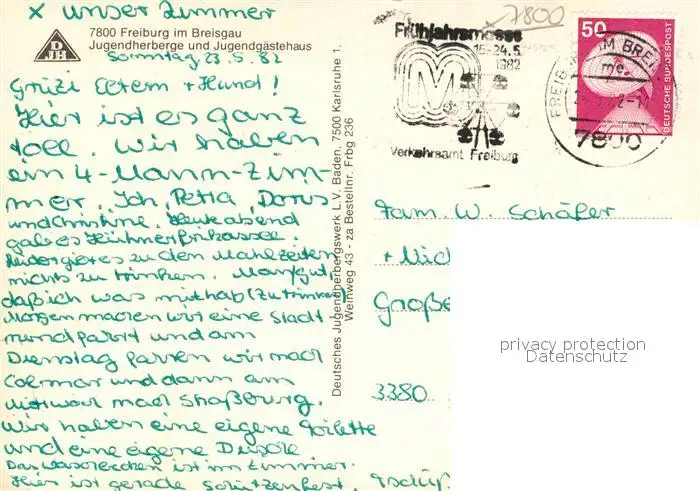 x unser Zimmer
7800 Freiburg im Breisgau
Jugendherberge und Jugendgästehaus
DJH
Sonntag 23.5.82
Grüzi Eltern + Hund!
Hier ist es ganz
toll. Wir haben
ein 4-Mann-Zim-
mer. Ich, Petra, Doris
und Christine. Heute abend
gab es Hühnerfrikassee.
Leider gibt es zu den Mahlzeiten
nichts zu trinken. Man gut,
daß ich was mithab (zu trinken)
Morgen machen wir eine Stadt
rundfahrt und am
Dienstag fahren wir nach
Colmar und dann am
Mittwoch nach Straßburg.
Wir haben eine eigene Toilette
und eine eigene Dusche
Das Waschbecken ist im Zimmer.
Hier ist gerade Schützenfest. Tschüß
Deutsches Jugendherbergswerk L.V. Baden, 7500 Karlsruhe 1,
Weinweg 43 - za Bestellnr. Frbg 236
x 7800
Frühjahrsmesse
15-24.5.
1982
M
Verkehrsamt Freiburg
50
DEUTSCHE BUNDESPOST
FREIB IM BREI
7800
Fam. W. Schäfer
+ Mic
Große
3380
privacy protection
Datenschutz